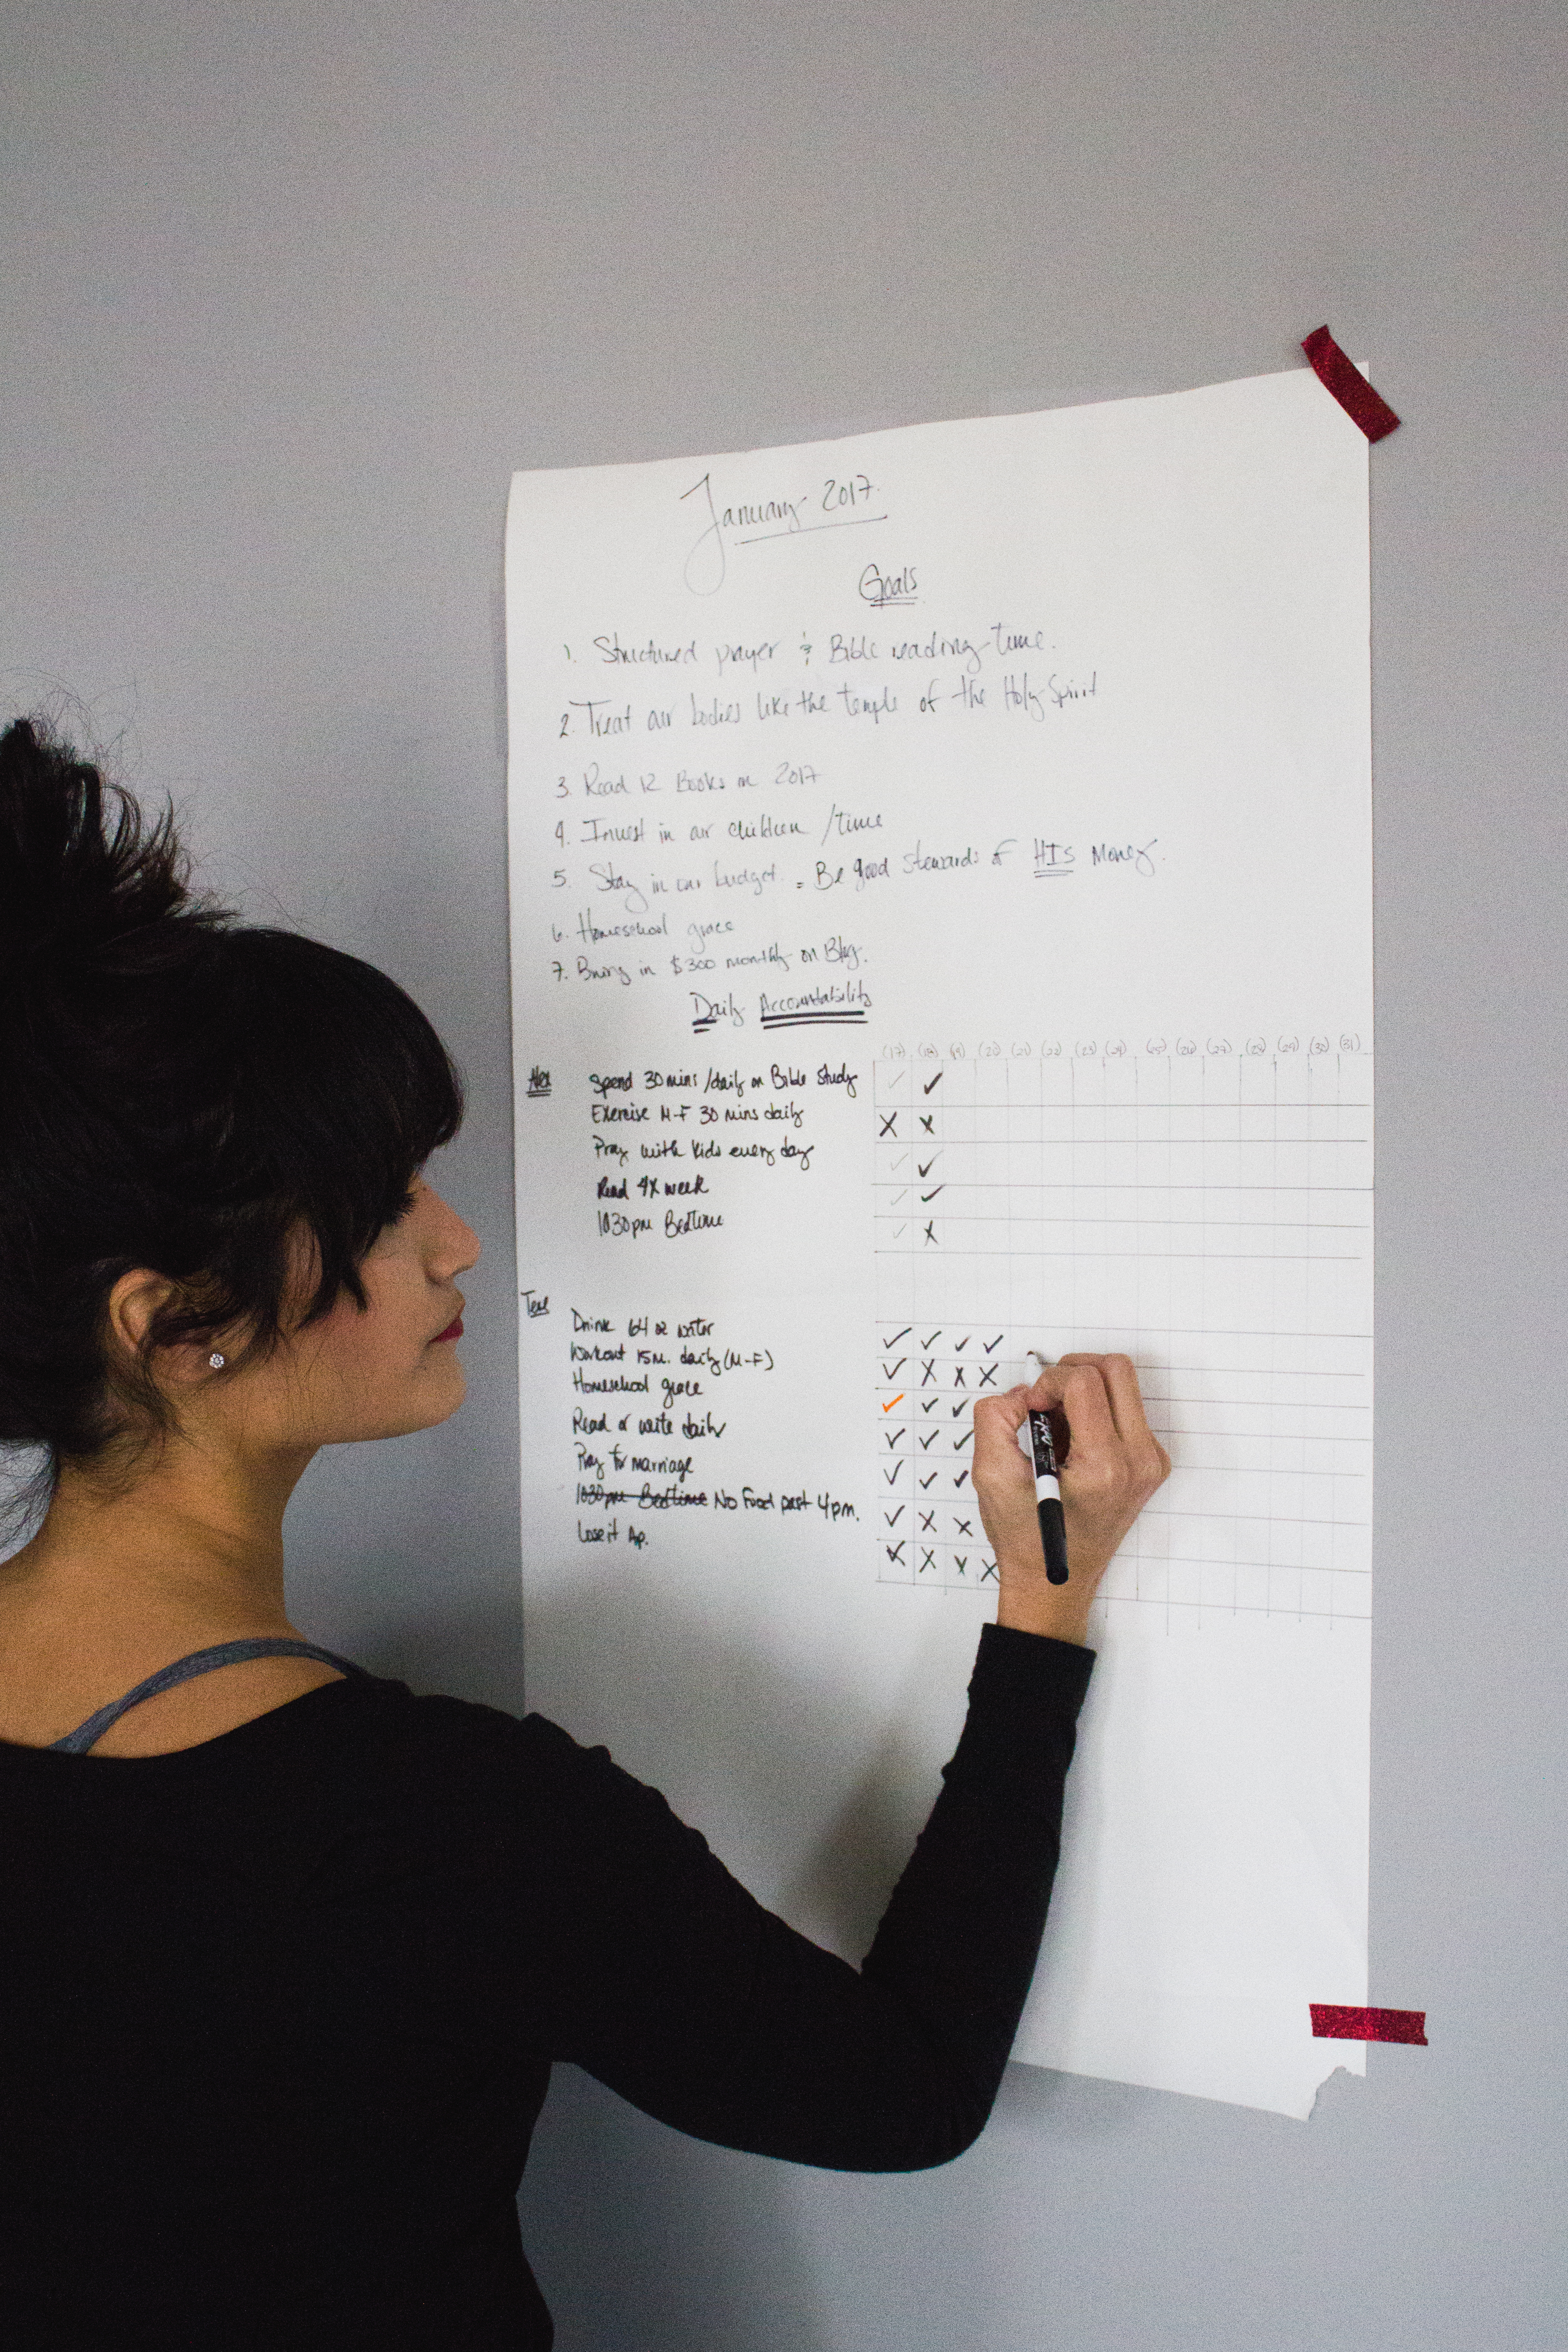 January 2017.
Goals
1. Structured prayer & Bible reading time.
2. Treat our bodies like the temple of the Holy Spirit
3. Read 12 Books in 2017
4. Invest in our children / time
5. Stay in our budget. = Be good stewards of HIS money.
6. Homeschool grace
7. Bring in $300 monthly on Blog.
Daily Accountability
(17) (18) (19) (20) (21) (22) (23) (24) (25) (26) (27) (28) (29) (30) (31)
Alex
Spend 30 mins / daily on Bible Study
Exercise M-F 30 mins daily
Pray with kids every day
Read 4x week
1030pm Bedtime
Drink 64 oz water
Workout 15m. daily (M-F)
Homeschool grace
Read or write daily
Pray for marriage
1030pm Bedtime No Food past 4pm.
Lose it Ap.
EXPO